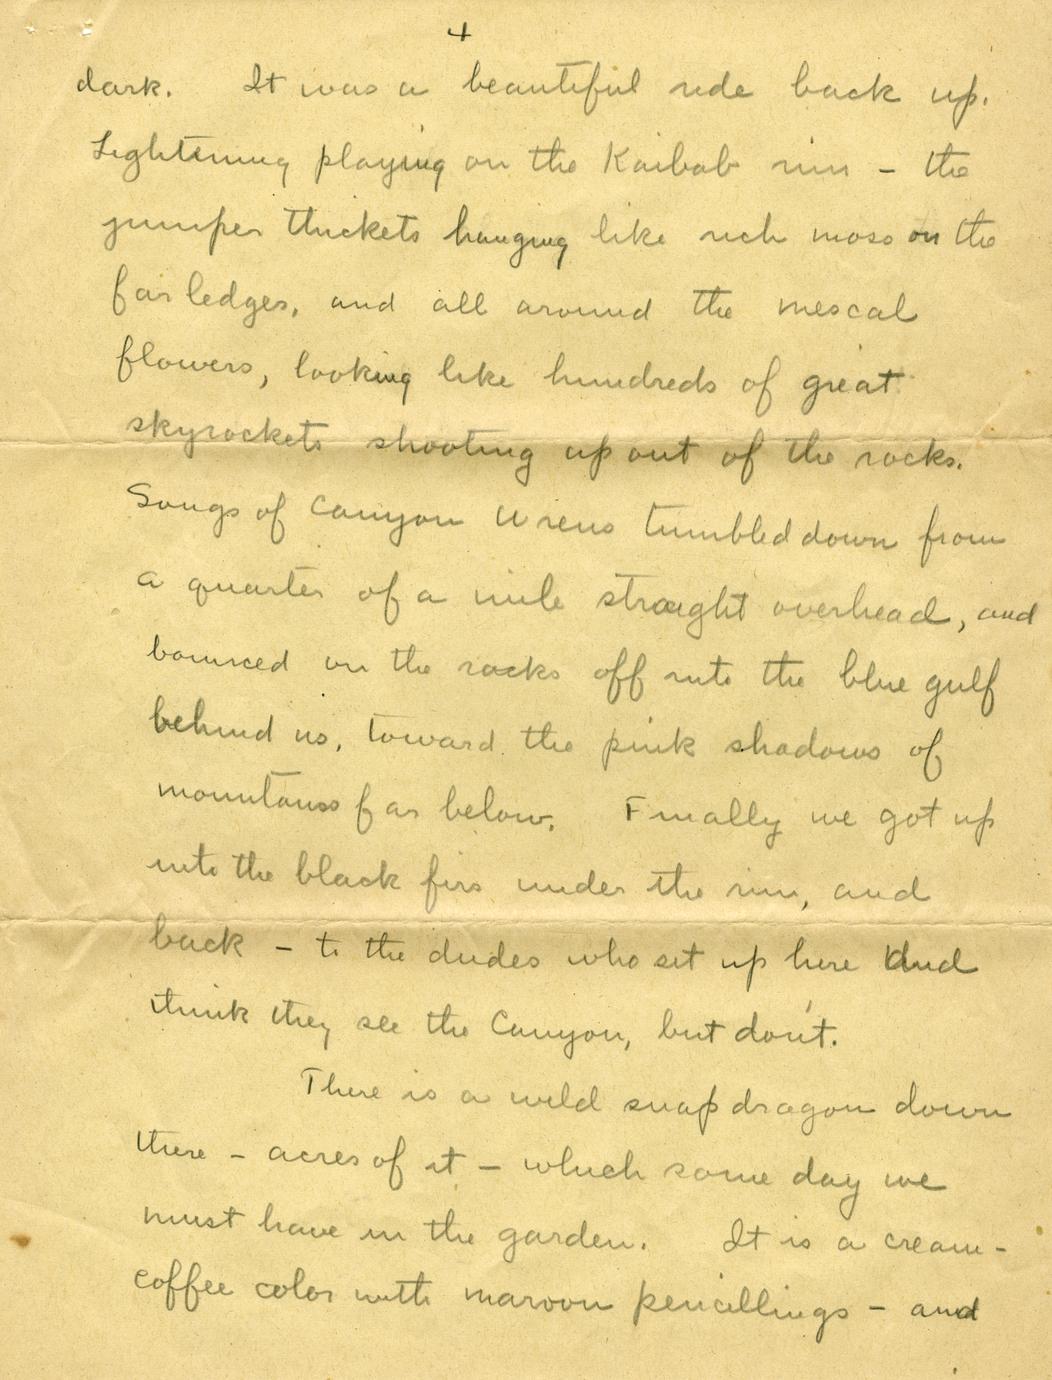 4
dark. It was a beautiful ride back up.
Lightening playing on the Kaibab rim - the
juniper thickets hanging like rich moss on the
far ledges, and all around the mescal
flowers, looking like hundreds of great
skyrockets shooting up out of the rocks.
Songs of Canyon Wrens tumbled down from
a quarter of a mile straight overhead, and
bounced on the rocks off into the blue gulf
behind us, toward the pink shadows of
mountains far below. Finally we got up
into the black firs under the rim, and
back - to the dudes who set up here and
think they see the Canyon, but don't.
There is a wild snapdragon down
there - acres of it - which some day we
must have in the garden. It is a cream-
coffee color with maroon pencillings - and